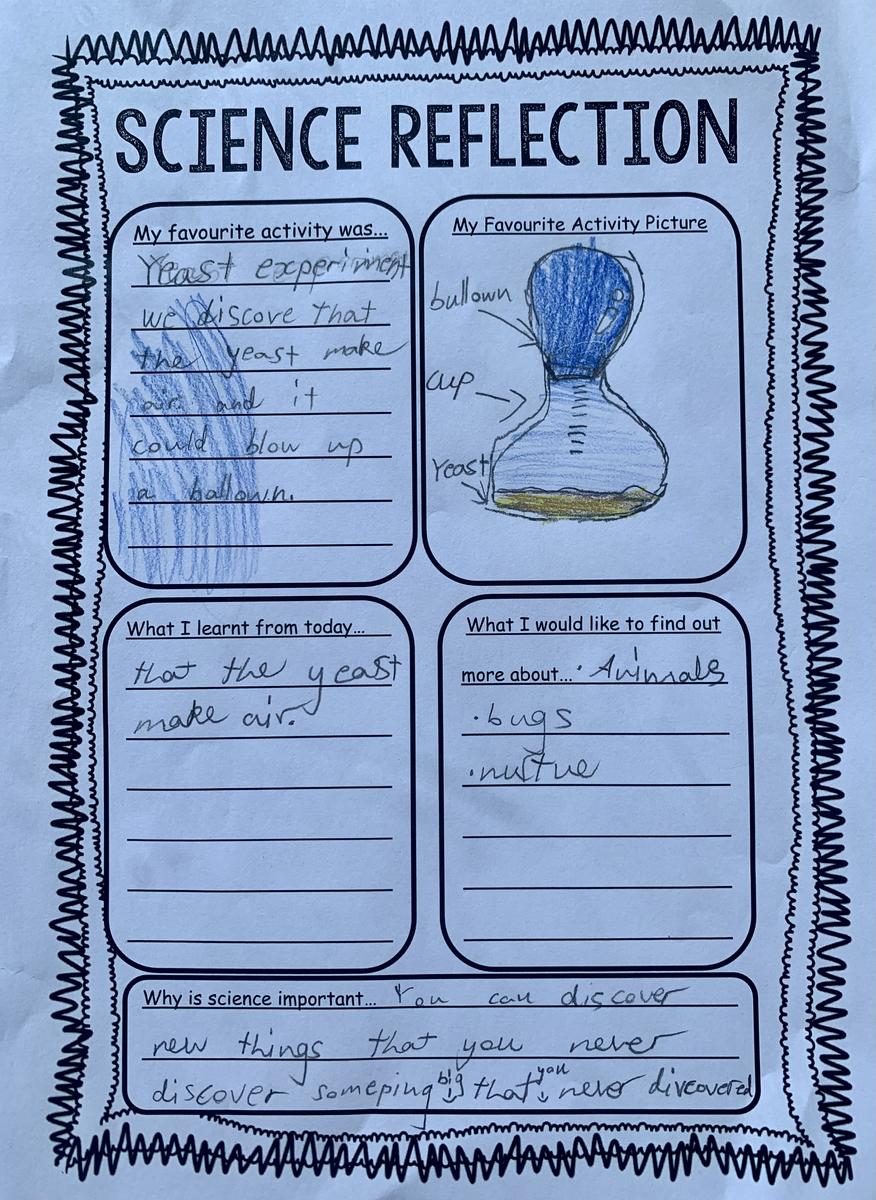 SCIENCE REFLECTION
My favourite activity was...
Yeast experiment
we discove that
the yeast make
air and it
could blow up
a ballown.
My Favourite Activity Picture
bullown
cup
Yeast
What I learnt from today...
that the yeast
make air.
What I would like to find out
more about... · Animals
· bugs
· nutue
Why is science important... You can discover
new things that you never
big you
discover someping that never divcovered